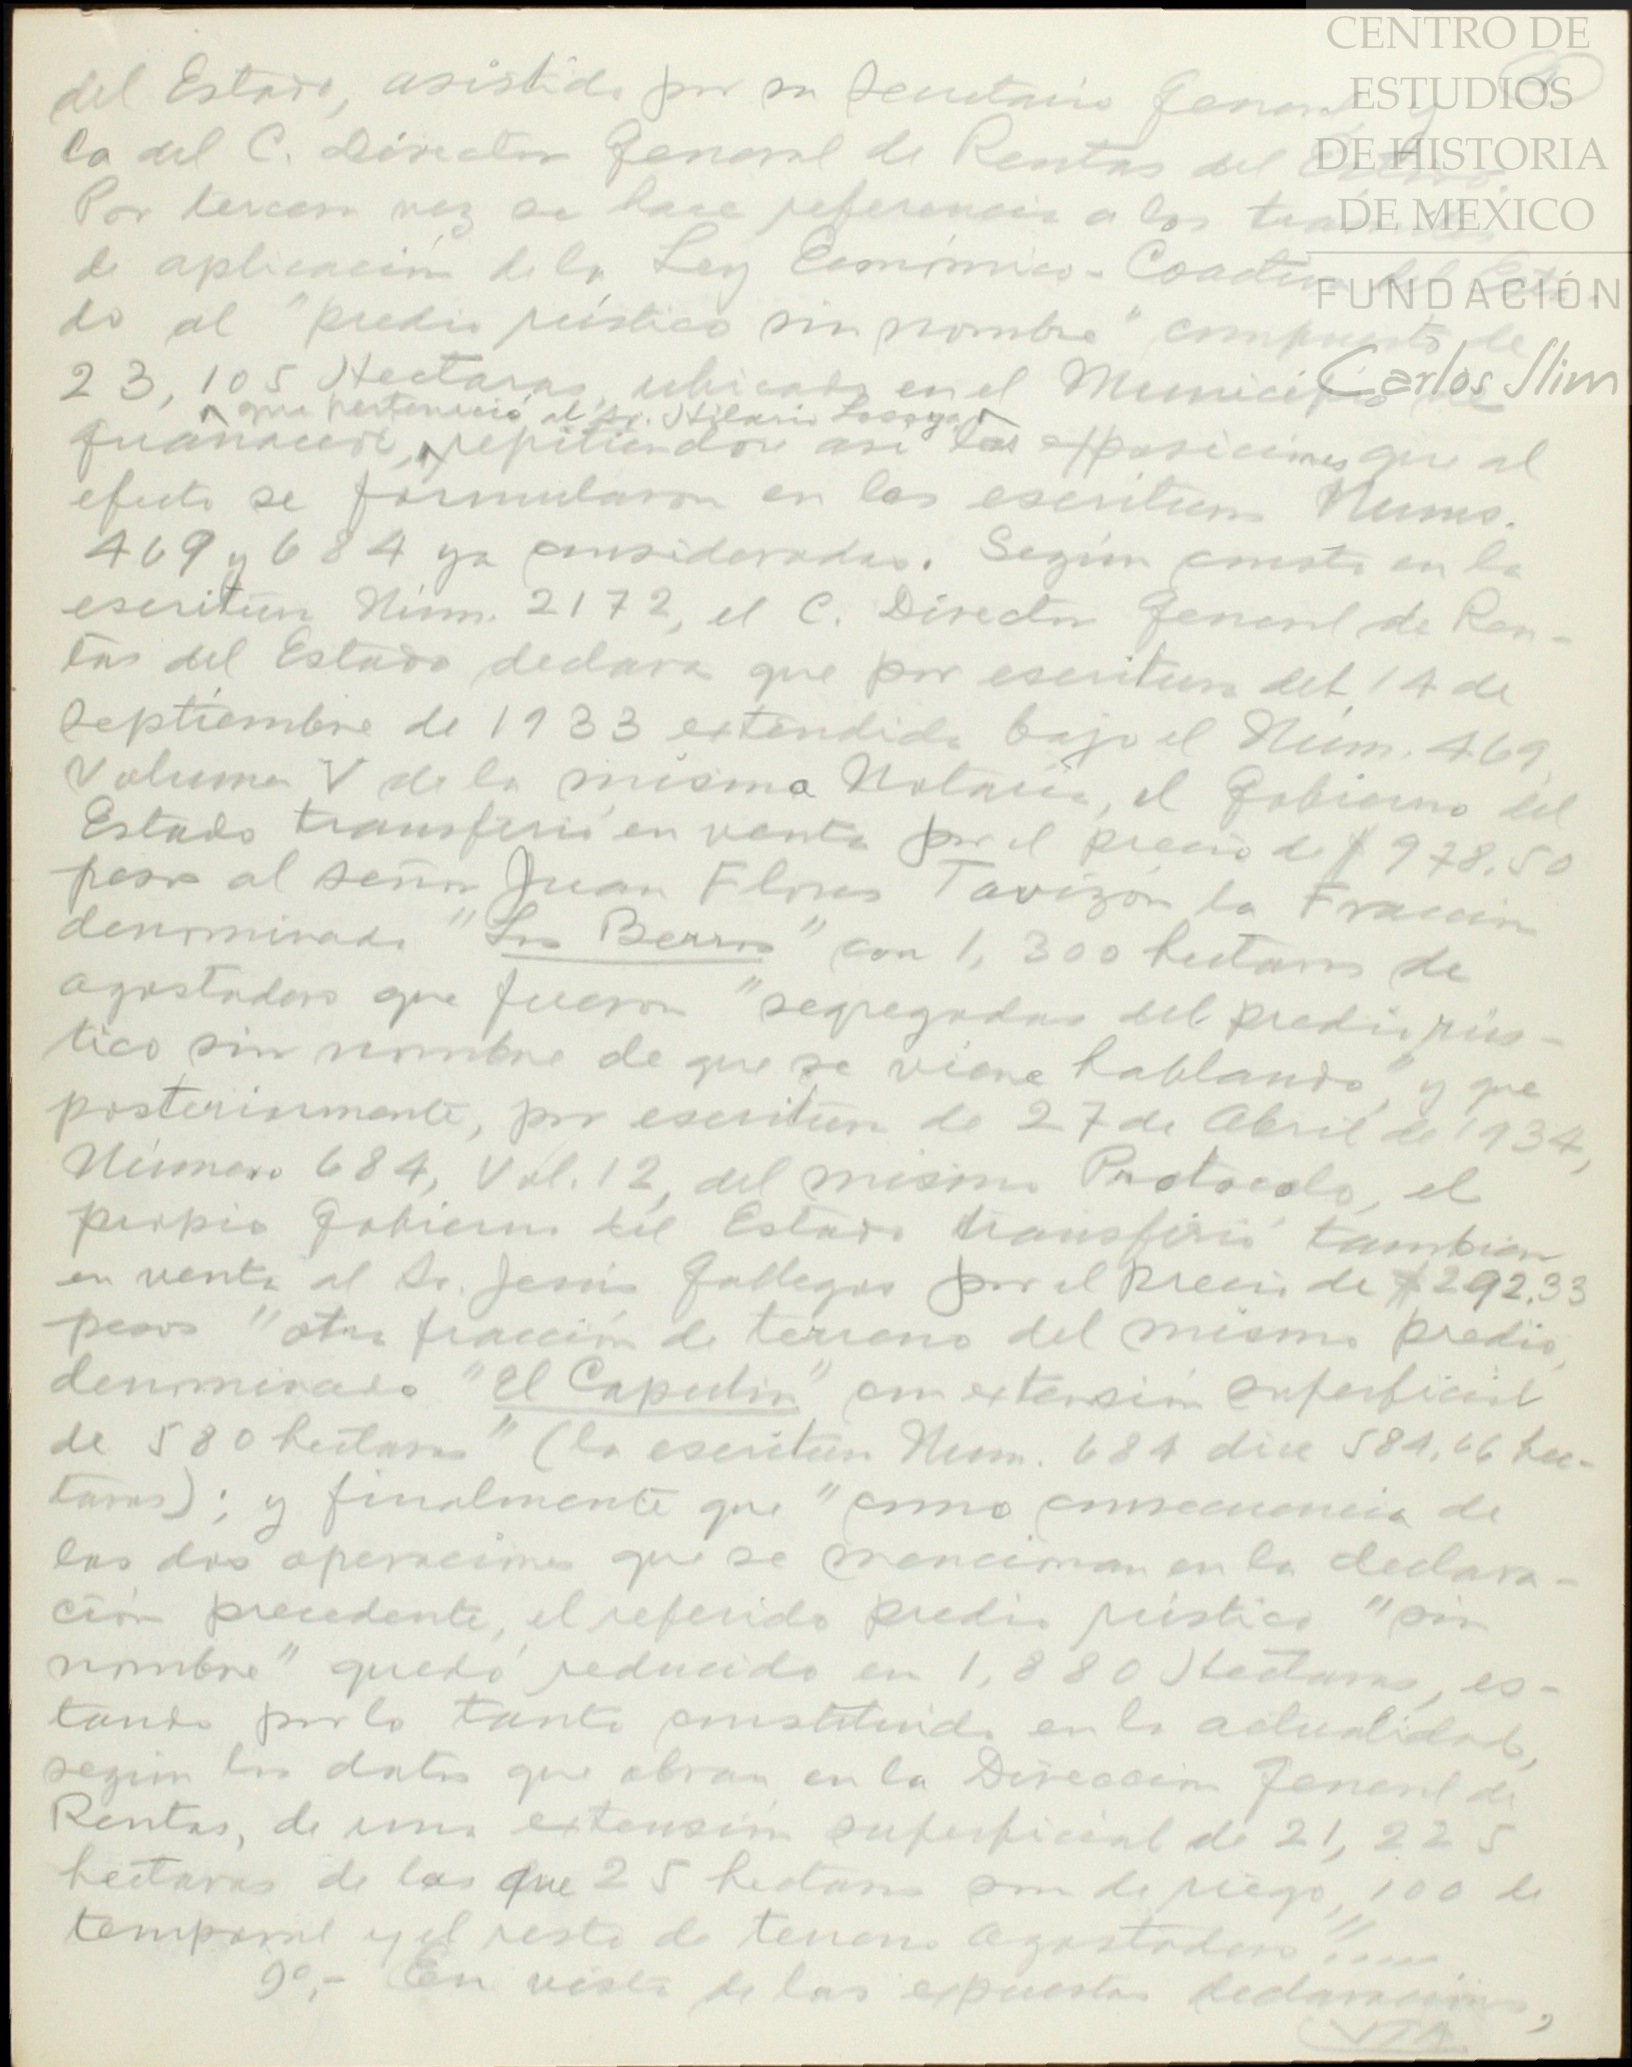 CENTRO DE
ESTUDIOS
DE HISTORIA
DE MEXICO
FUNDACIÓN
Carlos Slim
del Estado, asistido por su Secretario General y
la del C. Director General de Rentas del Estado.
Por tercera vez se hace referencia a los
de aplicación de la Ley Económico-Coactiva del Esta-
do al "predio rústico sin nombre" compuesto de
23,105 Hectaras, ubicado en el Municipio de
que perteneció al Sr. Hilario Lozoya
Guanaceví, repitiendose asi las exposiciones que al
efecto se formularon en las escrituras Nums.
469 y 684 ya consideradas. Según consta en la
escritura Núm. 2172, el C. Director General de Ren-
tas del Estado declara que por escritura del 14 de
Septiembre de 1933 extendida bajo el Núm. 469,
Volumen V de la misma Notaría, el Gobierno del
Estado transfirió en venta por el precio de $978.50
pesos al señor Juan Flores Tavizón la Fracción
denominada "Los Berros" con 1,300 hectaras de
agostadero que fueron "segregadas del predio rús-
tico sin nombre de que se viene hablando", y que
posteriormente, por escritura de 27 de Abril de 1934,
Número 684, Vol. 12, del mismo Protocolo, el
propio Gobierno del Estado transfirió tambien
en venta al Sr. Jesús Gallegos por el precio de $292.33
pesos "otra fracción de terreno del mismo predio,
denominado "El Capulin" con extensión superficial
de 580 hectaras" (la escritura Num. 684 dice 584.66 hec-
taras); y finalmente que "como consecuencia de
las dos operaciones que se mencionan en la declara-
ción precedente, el referido predio rústico "sin
nombre" quedó reducido en 1,880 Hectaras, es-
tando por lo tanto constituido en la actualidad,
según los datos que obran en la Dirección General de
Rentas, de una extensión superficial de 21,225
hectaras de las que 25 hectaras son de riego, 100 de
temporal y el resto de terreno agostadero"....
9°.- En vista de las expuestas declaraciones,